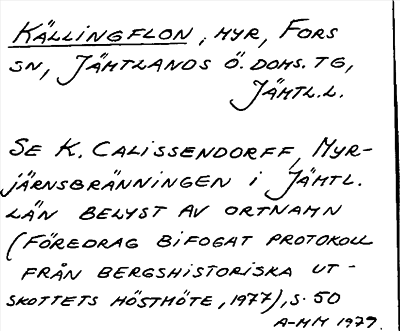 KÄLLINGFLON, MYR, FORS
SN, JÄMTLANDS Ö. DOMS. TG,
JÄMTL.L.
SE K. CALISSENDORFF, MYR-
JÄRNSBRÄNNINGEN I JÄMTL.
LÄN BELYST AV ORTNAMN
(FÖREDRAG BIFOGAT PROTOKOLL
FRÅN BERGSHISTORISKA UT-
SKOTTETS HÖSTMÖTE, 1977), S. 50
A-MM 1979.